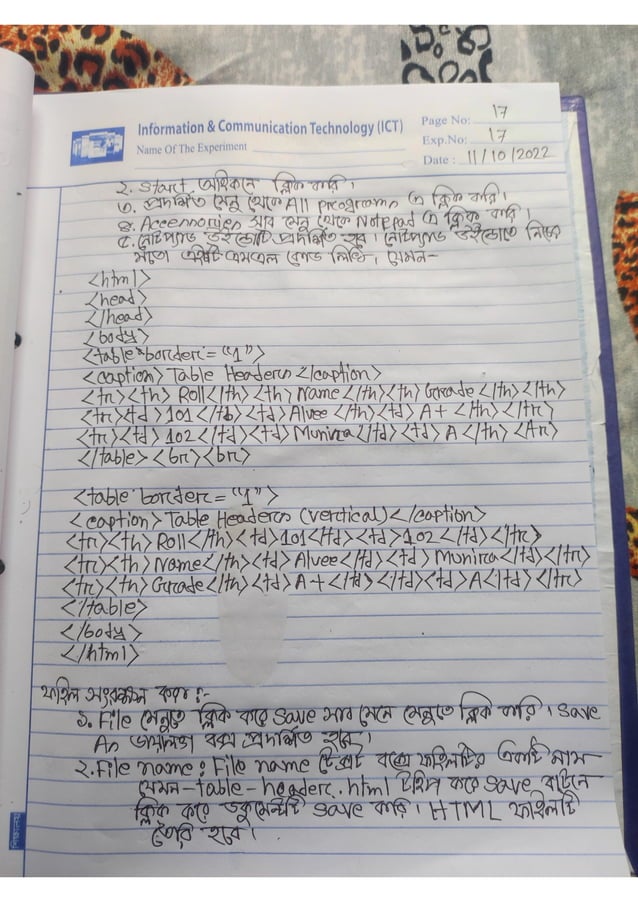 Information & Communication Technology (ICT)
Name Of The Experiment
Page No: 17
Exp.No: 17
Date : 11/10/2022
২. Start আইকনে ক্লিক করি।
৩. প্রদর্শিত মেনু থেকে All programs এ ক্লিক করি।
৪. Accessories সাব মেনু থেকে Notepad এ ক্লিক করি।
৫. নোটপ্যাড উইন্ডোটি প্রদর্শিত হবে। নোটপ্যাড উইন্ডোতে নিচের
মতো এইচটিএমএল কোড লিখি, যেমন-
<html>
<head>
</head>
<body>
<table border = "1">
<caption> Table Headers </caption>
<tr><th> Roll</th><th> Name </th><th> Grade </th></th>
<tr><td> 101 </td><td> Alvee </th><td> A+ </th></tr>
<tr><td> 102 </td><td> Munira</td><td> A </th></tr>
</table> <br><br>
<table border = "1">
<caption> Table Headers (vertical)</caption>
<tr><th> Roll</th><td>101</td><td>102</td></tr>
<tr><th> Name</th><td> Alvee</td><td> Munira</td></tr>
<tr><th> Grade</th><td> A+</td></td><td> A</td></tr>
</table>
</body>
</html>
ফাইল সংরক্ষন করা :-
১. File মেনুতে ক্লিক করে save সাব মেনে মেনুতে ক্লিক করি। save
As ডায়ালগ বক্স প্রদর্শিত হবে।
২. File name : File name টেক্সট বক্সে ফাইলটির একটি নাম
যেমন-table-header.html টাইপ করে save বাটনে
ক্লিক করে ডকুমেন্টটি save করি। HTML ফাইলটি
তৈরি হবে।